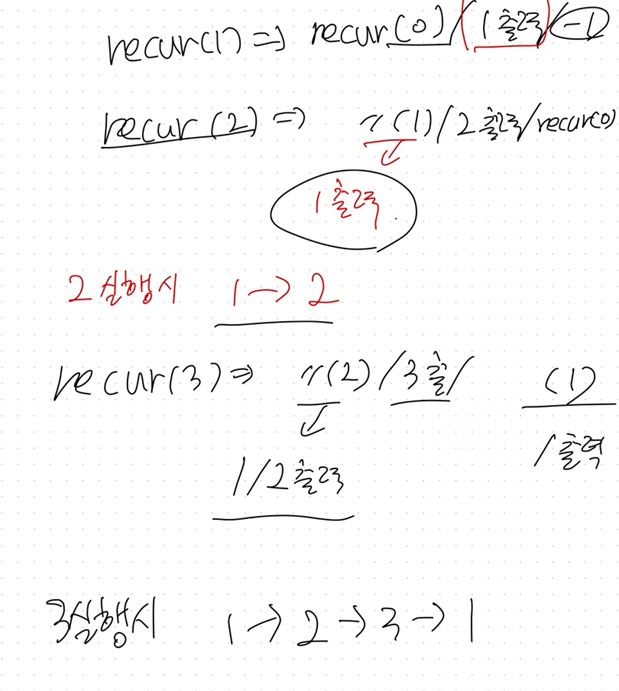 recur(1) => recur(0) / 1출력 / -1
recur(2) => 〃(1) / 2출력 / recur(0)
1출력.
2실행시 1 → 2
recur(3) => 〃(2) / 3출 / (1)
1/2출력
1출력
3실행시 1 → 2 → 3 → 1